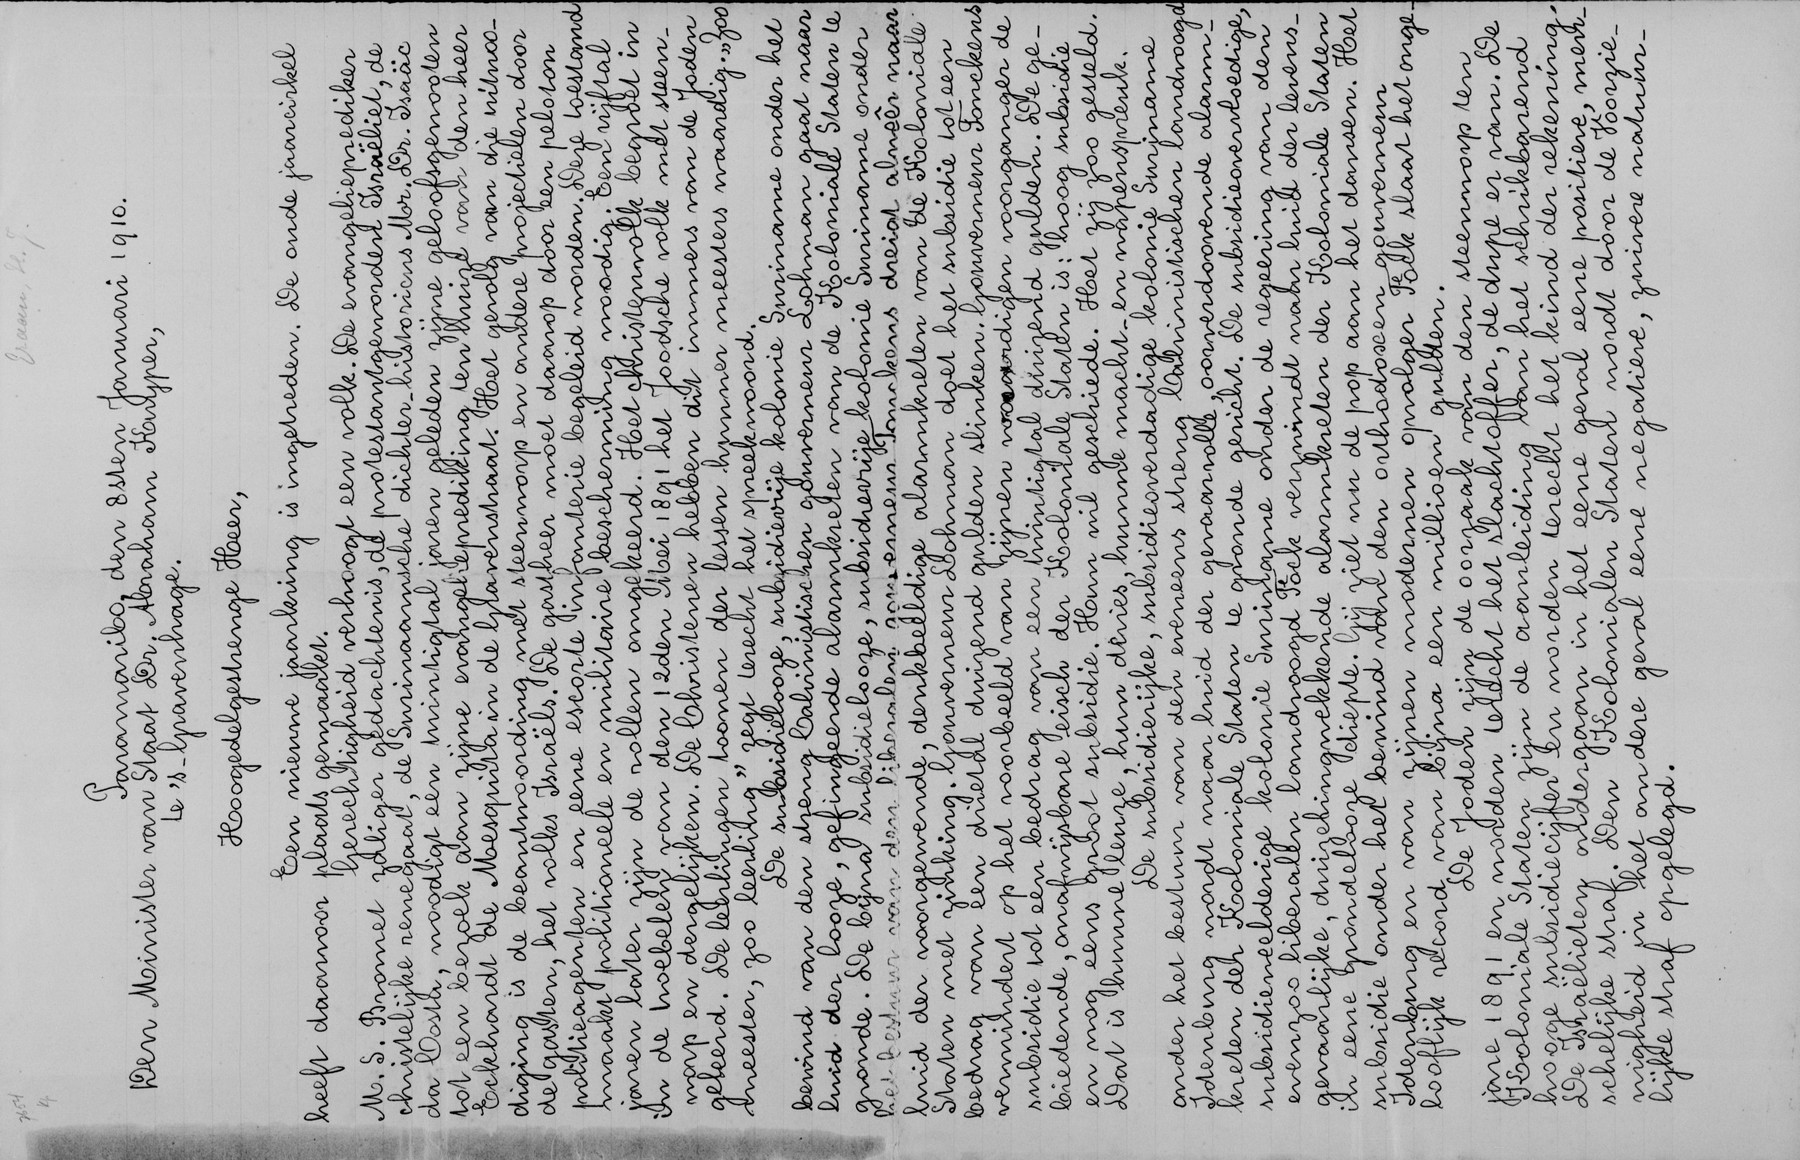 Paramaribo, den 8sten Januari 1910.
Den Minister van Staat Dr. Abraham Kuyper,
te 's-Gravenhage.
Hoogedelgestrenge Heer,
Een nieuwe jaarkring is ingetreden. De oude jaarcirkel
heeft daarvoor plaats gemaakt.
Gerechtigheid verhoogt een volk. De evangelieprediker
M. S. Bromet zaliger gedachtenis, de protestantgeworden Israëliet, de
christelijke renegaat, de Surinaamsche dichter-historicus Mr. Dr. Isaäc
da Costa, noodigt een twintigtal jaren geleden zijne geloofsgenooten
tot een bezoek aan zijne evangelieprediking ten huize van den heer
Eckhardt de Mesquita in de Gravenstraat. Het gevolg van die uitnoo-
diging is de beantwoording met steenworp en andere projectielen door
de gasten, het volks Israëls. De gastheer moet daarop door een peloton
politieagenten en eene escorte infanterie begeleid worden. Deze toestand
maakt politioneele en militaire bescherming noodig. Een vijftal
jaren later zijn de rollen omgekeerd. Het christenvolk begroet in
in de hoebelely van den 12den Mei 1891 het Joodsche volk met steen-
worp en dergelijken. De Christenen hebben dit immers van de Joden
geleerd. De leerlingen toonen der lessen hunner meesters waardig. „Zoo
meester, zoo leerling” zegt terecht het spreekwoord.
De subsidielooze, subsidievrije kolonie Suriname onder het
bewind van den streng Calvinistischen gouverneur Lohman gaat naar
luid der looze, gefingeerde alarmkreten van de Koloniale Staten te
gronde. De bijna subsidielooze, subsidievrije kolonie Suriname onder
het bestuur van den liberalen gouverneur Tonckens dreigt alweêr naar
luid der voorgewende, denkbeeldige alarmkreten van de Koloniale
Staten met zinking. Gouverneur Lohman doet het subsidie tot een
bedrag van een drietal duizend gulden slinken. Gouverneur Tonckens
vermindert op het voorbeeld van zijnen voorgaardigen voorganger de
subsidie tot een bedrag van een twintigtal duizend gulden. De ge-
biedende, onafwijsbare eisch der Koloniale Staten is: hoog subsidie
en nog eens groot subsidie. Hun wil geschiede. Het zij zoo gesteld.
Dat is hunne leuze, hun devies, hunne macht- en wapenspreuk.
De subsidierijke, subsidieoverdadige kolonie Suriname
onder het bestuur van den eveneens streng Calvinistischen landvoogd
Idenburg wordt naar luid der gevaarvolle, oorverdoovende alarm-
kreten der Koloniale Staten te gronde gericht. De subsidieovervloedige,
subsidieweelderige kolonie Suriname onder de regeering van den
evenzoo liberalen landvoogd Föck verzwindt naar luid der levens-
gevaarlijke, duizelingwekkende alarmkreten der Koloniale Staten
in eene grondelooze diepte. Gij ziet nu de pop aan het dansen. Het
subsidie onder het bewind van den orthodoxen gouverneur
Idenburg en van zijnen modernen opvolger Föck slaat het onge-
looflijk record van bijna een millioen gulden.
De Joden zijn de oorzaak van den steenworp ten
jare 1891 en worden slecht het slachtoffer, de dupe er van. De
Koloniale Staten zijn de aanleiding van het schrikbarend
hooge subsidiecijfer en worden terecht het kind der rekening.
De Israëlieten ondergaan in het eene geval eene positieve, mensch-
schelijke straf. Den Kolonialen Staten wordt door de Voorzie-
nigheid in het andere geval eene negatieve, zuivere natuur-
lijke straf opgelegd.